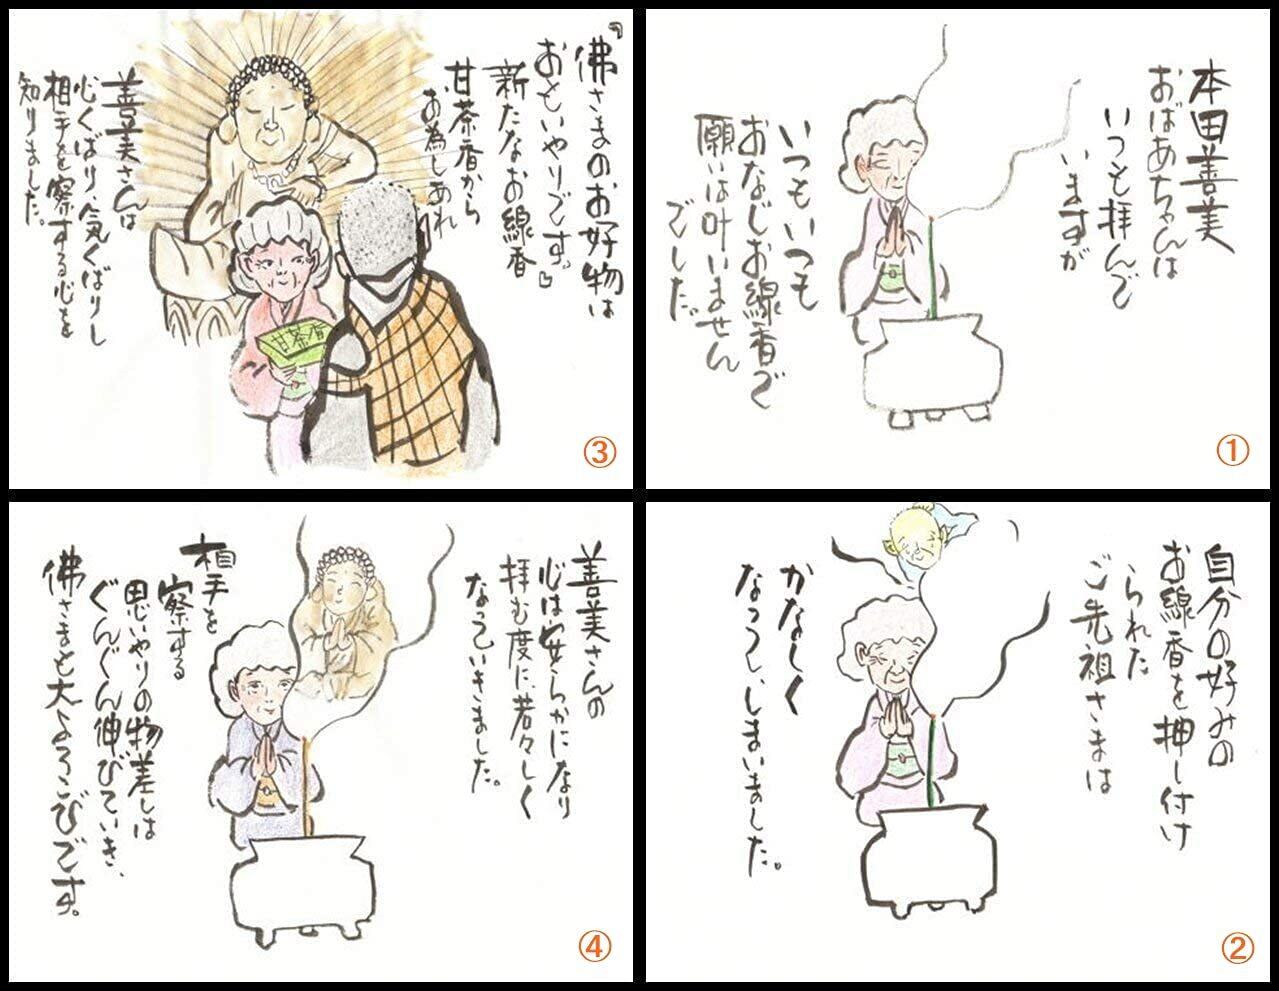 本田善美
おばあちゃんは
いつも拝んで
いますが
いつもいつも
おなじお線香で
願いは叶いません
でした。
①
自分の好みの
お線香を押し付け
られた
ご先祖さまは
かなしく
なってしまいました。
②
『佛さまのお好物は
おもいやりです。』
新たなお線香
甘茶香から
お為しあれ
善美さんは
心くばり、気くばりし
相手を察する心を
知りました。
甘茶香
③
善美さんの
心は安らかになり
拝む度に、若々しく
なっていきました。
相手を
察する
思いやりの物差しは
ぐんぐん伸びていき、
佛さまも大よろこびです。
④